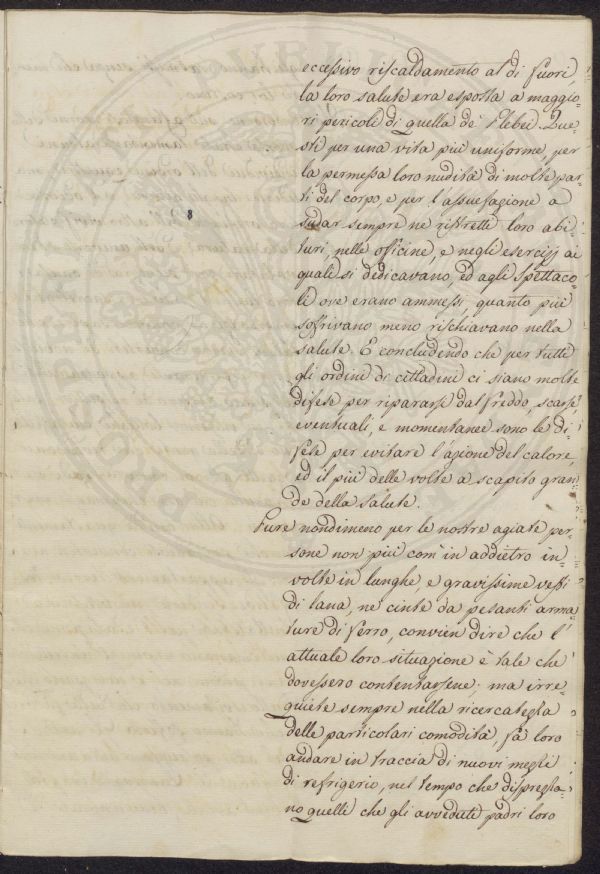 eccessivo riscaldamento al di fuori
la loro salute era esposta a maggio:
ri pericoli di quella de' Plebei. Que:
sti per una vita più uniforme, per
la permessa loro nudità di molte par:
ti del corpo, e per l'assuefazione a
sudar sempre ne ristretti loro abi:
turi, nelle officine, e negli esercizj ai
quali si dedicavano, ed agli spettaco:
li ove erano ammessi, quanto più
soffrivano meno rischiavano nella
salute. E concludendo che per tutti
gli ordini di cittadini ci siano molte
difese per ripararsi dal freddo, scarse,
eventuali, e momentanee sono le di:
fese per evitare l'azione del calore,
ed il più delle volte a scapito gran:
de della salute.
Pure nondimeno per le nostre agiate per:
sone non più com' in addietro in:
volte in lunghe, e gravissime vesti
di lana, ne cinte da pesanti arma:
ture di ferro, convien dire che l'
attuale loro situazione è tale che
dovessero contentarsene; ma irre:
quiete sempre nella ricercatezza
delle particolari comodità, fà loro
andare in traccia di nuovi mezzi
di refrigerio, nel tempo che disprezza:
no quelli che gli avveduti padri loro
8